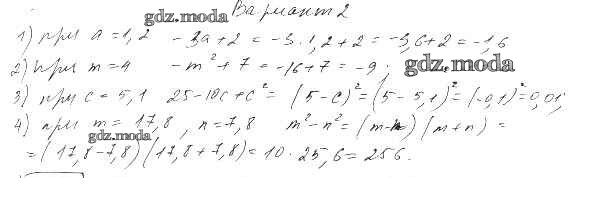 Вариант 2
gdz.moda
1) при a = 1,2 -3a+2 = -3·1,2+2 = -3,6+2 = -1,6
2) при m = 4 -m²+7 = -16+7 = -9.
gdz.moda
3) при c = 5,1 25-10c+c² = (5-c)² = (5-5,1)² = (-0,1)² = 0,01;
4) при m = 17,8, n = 7,8 m²-n² = (m-n)(m+n) =
gdz.moda
= (17,8-7,8)(17,8+7,8) = 10·25,6 = 256.